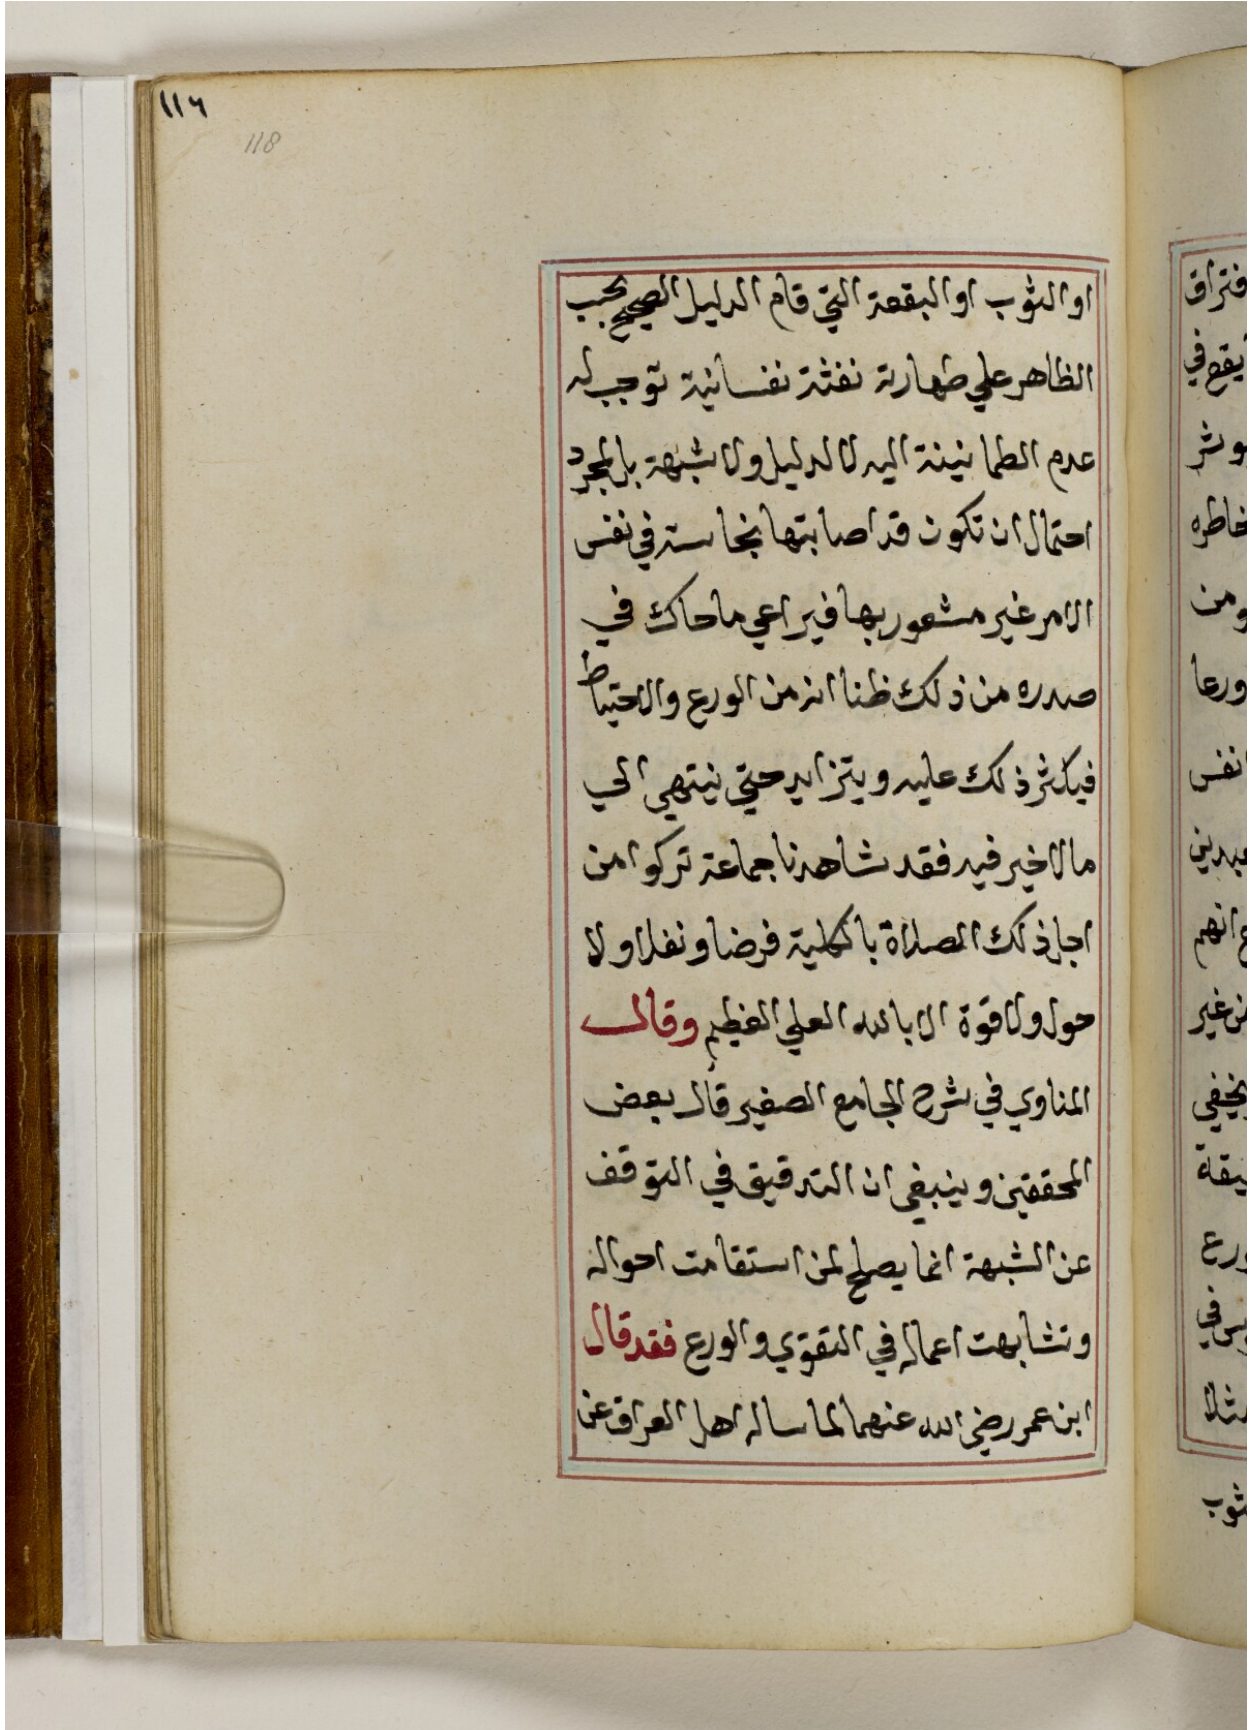 ١١٦
118
او الثوب او البقعة التي قام الدليل الصحيح بحسب
الظاهر علي طهارته نفثة نفسانية توجب له
عدم الطمانينة اليه لا لدليل ولا شبهة بل لمجرد
احتمال ان تكون قد اصابتها نجاسة في نفس
الامر غير مشعور بها فيراعي ما حاك في
صدره من ذلك ظنا انه من الورع والاحتياط
فيكثر ذلك عليه ويتزايد حتي ينتهي الي
ما لا خير فيه فقد شاهدنا جماعة تركوا من
اجل ذلك الصلاة بالكلية فرضا ونفلا ولا
حول ولا قوة الا بالله العلي العظيم وقال
المناوي في شرح الجامع الصغير قال بعض
المحققين وينبغي ان التدقيق في التوقف
عن الشبهة انما يصلح لمن استقامت احواله
وتشابهت اعماله في التقوي والورع فقد قال
ابن عمر رضي الله عنهما لما ساله اهل العراق عن